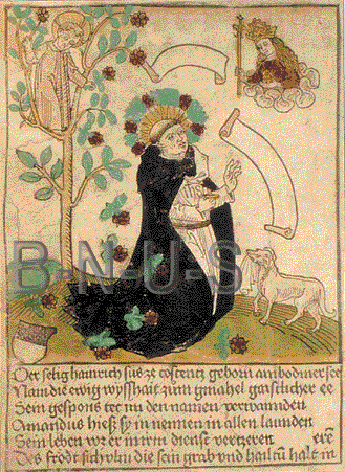 B-N-U-S
Der selig hainrich süs ze costentz geborn an bodmer see
Nam die ewig wysshait zum gmahel gaistlicher ee
Sein gespons tet im den namen
Amandus hieß sy in nennen in allen lannden
Sein leben er in irem dienst verzeren
Des frödt sich ulm die sein grab und hailtum halt in